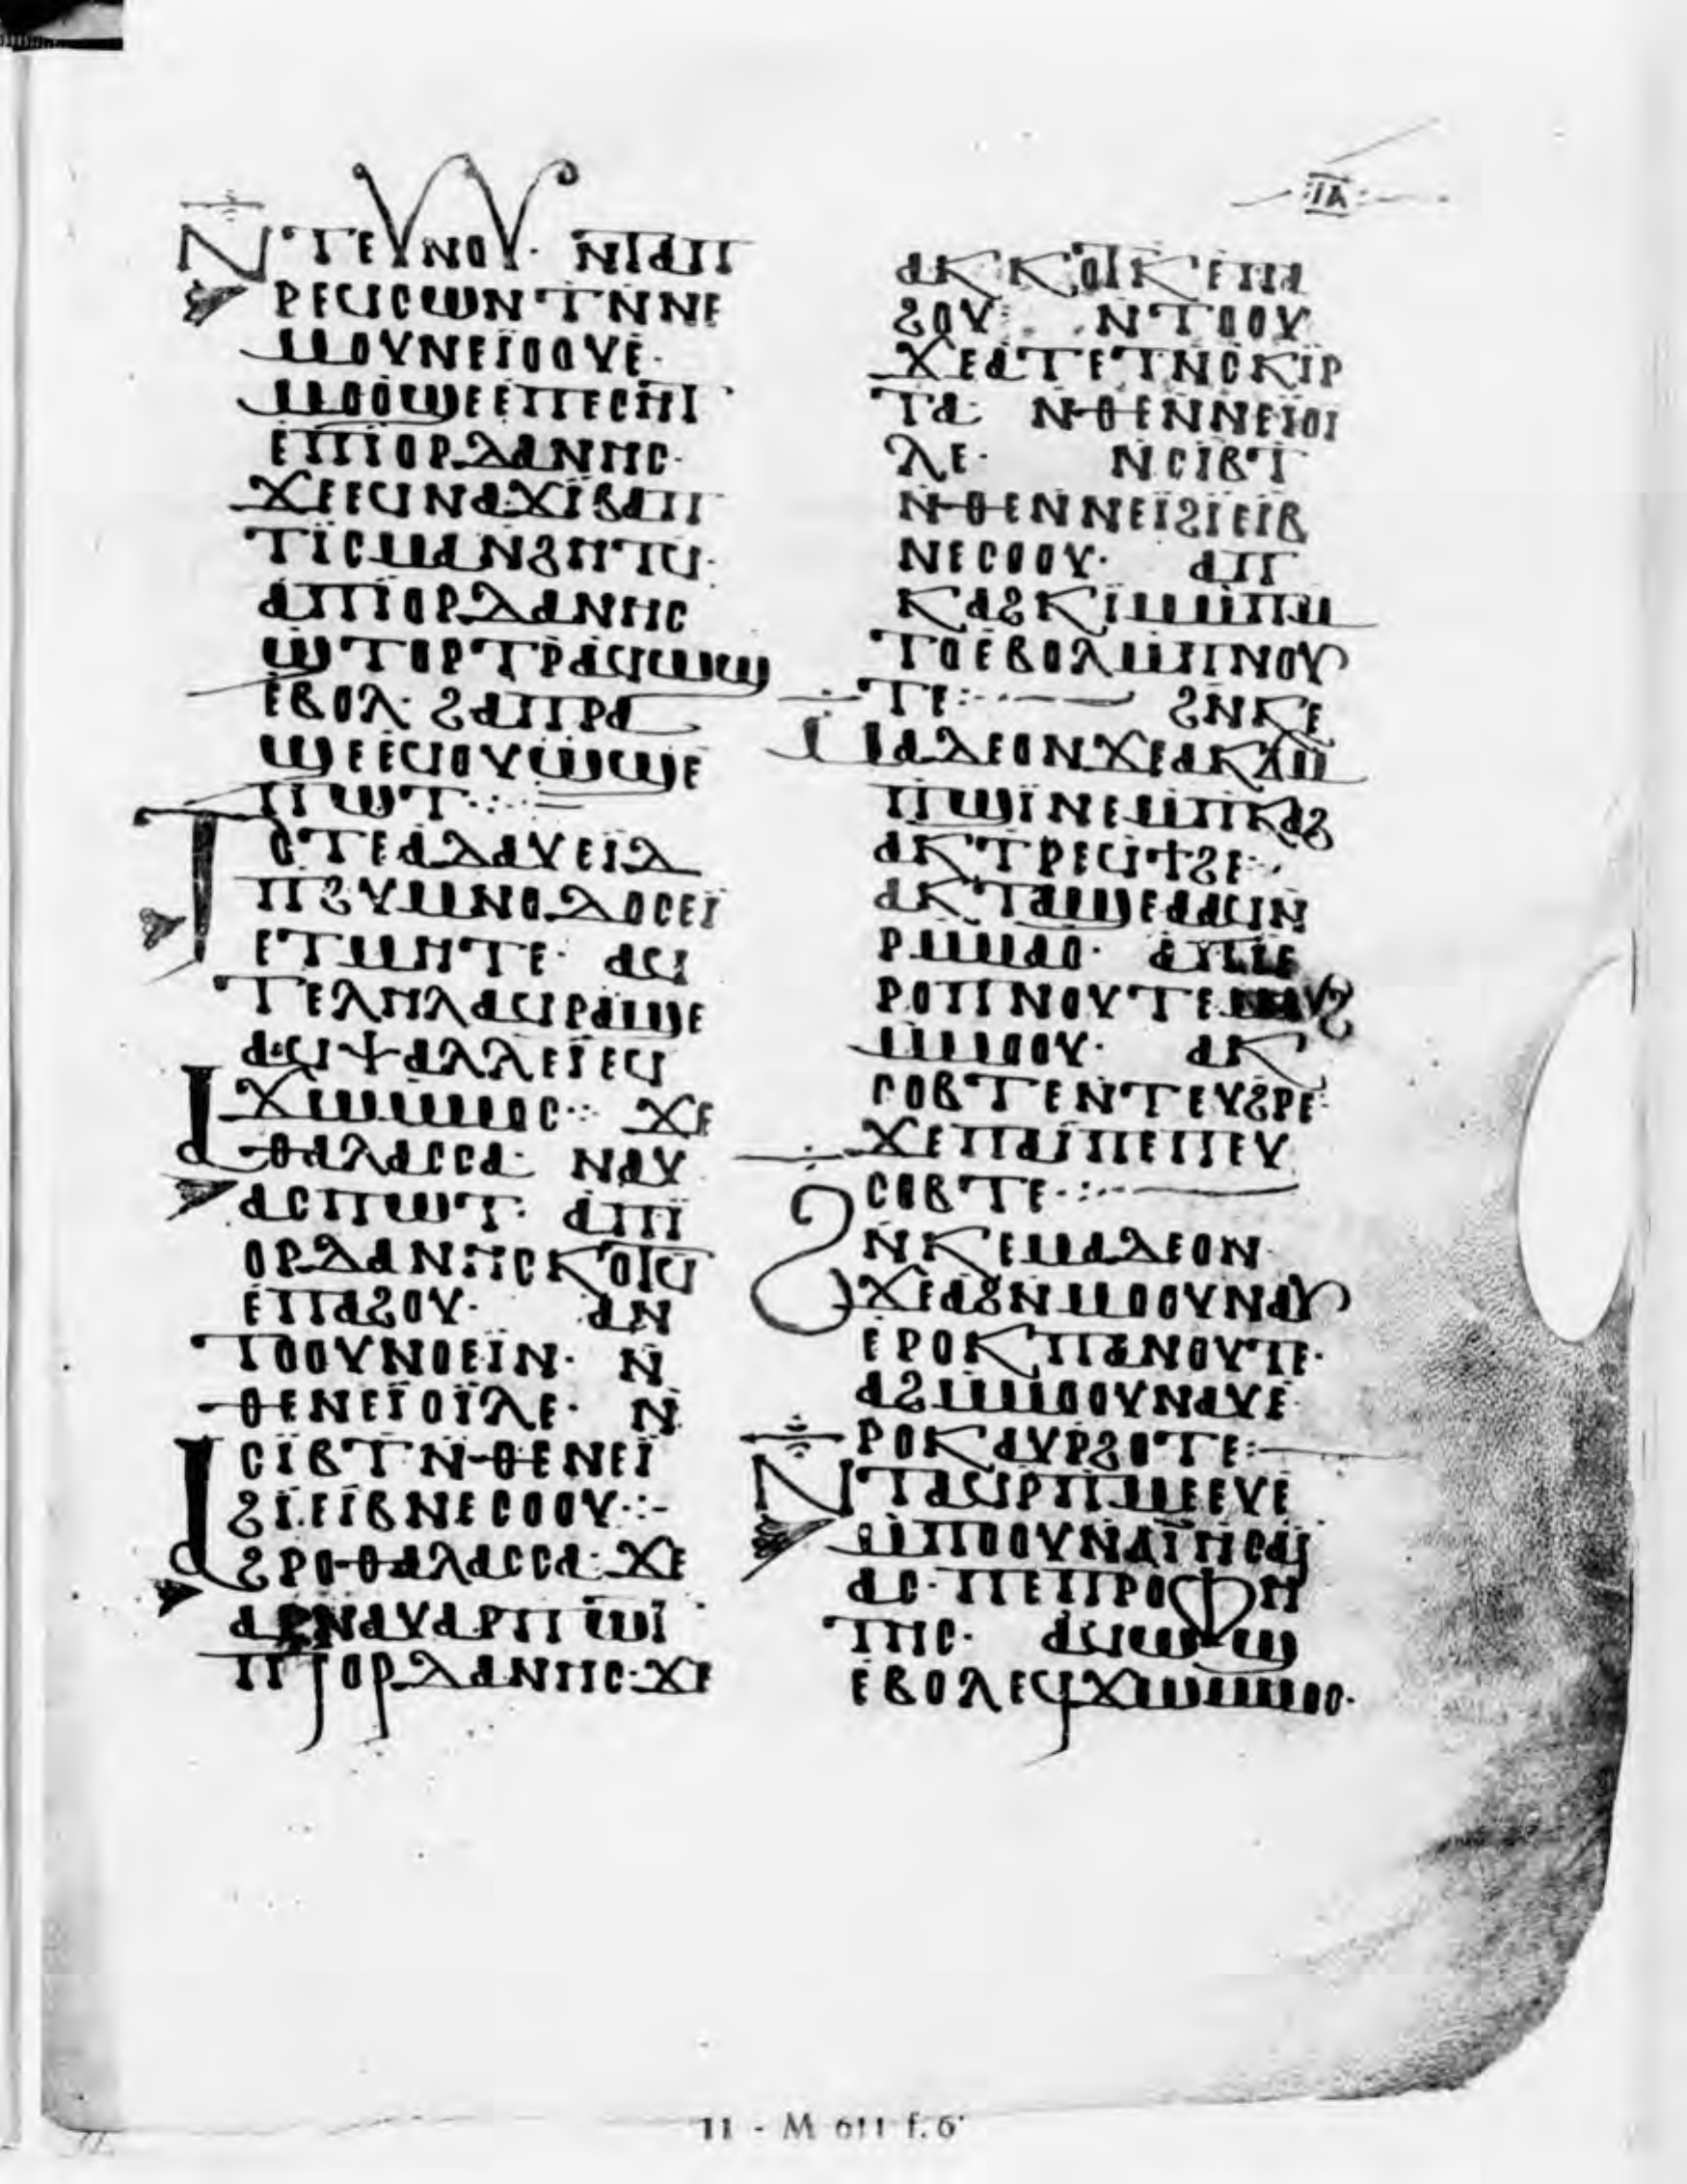 ⲓⲁ
ⲛⲧⲉⲩⲛⲟⲩ· ⲛⲧⲁⲡ
ⲣⲉϥⲥⲱⲛⲧ ⲛⲛⲉ
ⲙⲟⲩⲛⲉⲓⲟⲟⲩⲉ·
ⲙⲟⲟϣⲉⲉⲡⲉⲥⲏⲧ
ⲉⲡⲓⲟⲣⲇⲁⲛⲏⲥ·
ϫⲉⲉϥⲛⲁϫⲓⲃⲁⲡ
ⲧⲓⲥⲙⲁⲛϩⲏⲧϥ·
ⲁⲡⲓⲟⲣⲇⲁⲛⲏⲥ
ϣⲧⲟⲣⲧⲣⲁϥⲱϣ
ⲉⲃⲟⲗ· ϩⲁⲡⲣⲁ
ϣⲉⲉϥⲟⲩⲱϣⲉ
ⲡⲱⲧ·
ⲧⲟⲧⲉⲁⲇⲁⲩⲉⲓⲇ
ⲡϩⲩⲙⲛⲟⲇⲟⲥⲉⲓ
ⲉⲧⲙⲏⲧⲉ· ⲁϥ
ⲧⲉⲗⲏⲗⲁϥⲣⲁϣⲉ
ⲁϥⲯⲁⲗⲗⲉⲓⲉϥ
ϫⲱⲙⲙⲟⲥ· ϫⲉ
ⲁⲑⲁⲗⲁⲥⲥⲁ· ⲛⲁⲩ
ⲁⲥⲡⲱⲧ· ⲁⲡⲓ
ⲟⲣⲇⲁⲛⲏⲥⲕⲟⲧϥ
ⲉⲡⲁϩⲟⲩ· ⲁⲛ
ⲧⲟⲟⲩⲛⲟⲉⲓⲛ· ⲛ
ⲑⲉⲛⲉⲓⲟⲓⲗⲉ· ⲛ
ⲥⲓⲃⲧ ⲛⲑⲉⲛⲉⲓ
ϩⲓⲉⲓⲃⲛⲉⲥⲟⲟⲩ·
ⲁϩⲣⲟⲑⲁⲗⲁⲥⲥⲁ· ϫⲉ
ⲁⲣⲛⲁⲩⲁⲣⲡⲱⲧ·
ⲡⲓⲟⲣⲇⲁⲛⲏⲥ· ϫⲉ
ⲁⲕⲕⲟⲧⲕⲉⲡⲁ
ϩⲟⲩ· ⲛⲧⲟⲟⲩ
ϫⲉⲁⲧⲉⲧⲛⲥⲕⲓⲣ
ⲧⲁ· ⲛⲑⲉⲛⲛⲉⲓⲟⲓ
ⲗⲉ· ⲛⲥⲓⲃⲧ
ⲛⲑⲉⲛⲛⲉⲓϩⲓⲉⲓⲃ
ⲛⲉⲥⲟⲟⲩ· ⲁⲡ
ⲕⲁϩⲕⲓⲙⲙⲡⲙ
ⲧⲟⲉⲃⲟⲗⲙⲡⲛⲟⲩ
ⲧⲉ: ϩⲛⲕⲉ
ⲙⲁⲇⲉⲟⲛϫⲉⲁⲕϭⲙ
ⲡϣⲓⲛⲉⲙⲡⲕⲁϩ
ⲁⲕⲧⲣⲉϥϯϩⲉ·
ⲁⲕⲧⲁϣⲉⲁⲁϥⲛ
ⲣⲙⲙⲁⲟ· ⲁⲡⲓⲉ
ⲣⲟⲡⲛⲟⲩⲧⲉⲙⲟⲩϩ
ⲙⲙⲟⲟⲩ· ⲁⲕ
ⲥⲟⲃⲧⲉⲛⲧⲉⲩϩⲣⲉ·
ϫⲉⲡⲁⲓⲡⲉⲡⲉⲩ
ⲥⲟⲃⲧⲉ·
ϩⲛⲕⲉⲙⲁⲇⲉⲟⲛ·
ϫⲉⲁϩⲛⲙⲟⲟⲩⲛⲁⲩ
ⲉⲣⲟⲕⲡⲁⲛⲟⲩⲧⲉ·
ⲁϩⲙⲙⲟⲟⲩⲛⲁⲩⲉ
ⲣⲟⲕⲁⲩⲣϩⲟⲧⲉ:
ⲛⲧⲁϥⲣⲡⲙⲉⲉⲩⲉ
ⲙⲡⲟⲟⲩⲛϭⲓⲏⲥⲁⲓ
ⲁⲥ· ⲡⲉⲡⲣⲟⲫⲏ
ⲧⲏⲥ· ⲁϥⲱϣ
ⲉⲃⲟⲗⲉϥϫⲱⲙⲙⲟⲥ·
11 - M 611 f. 6